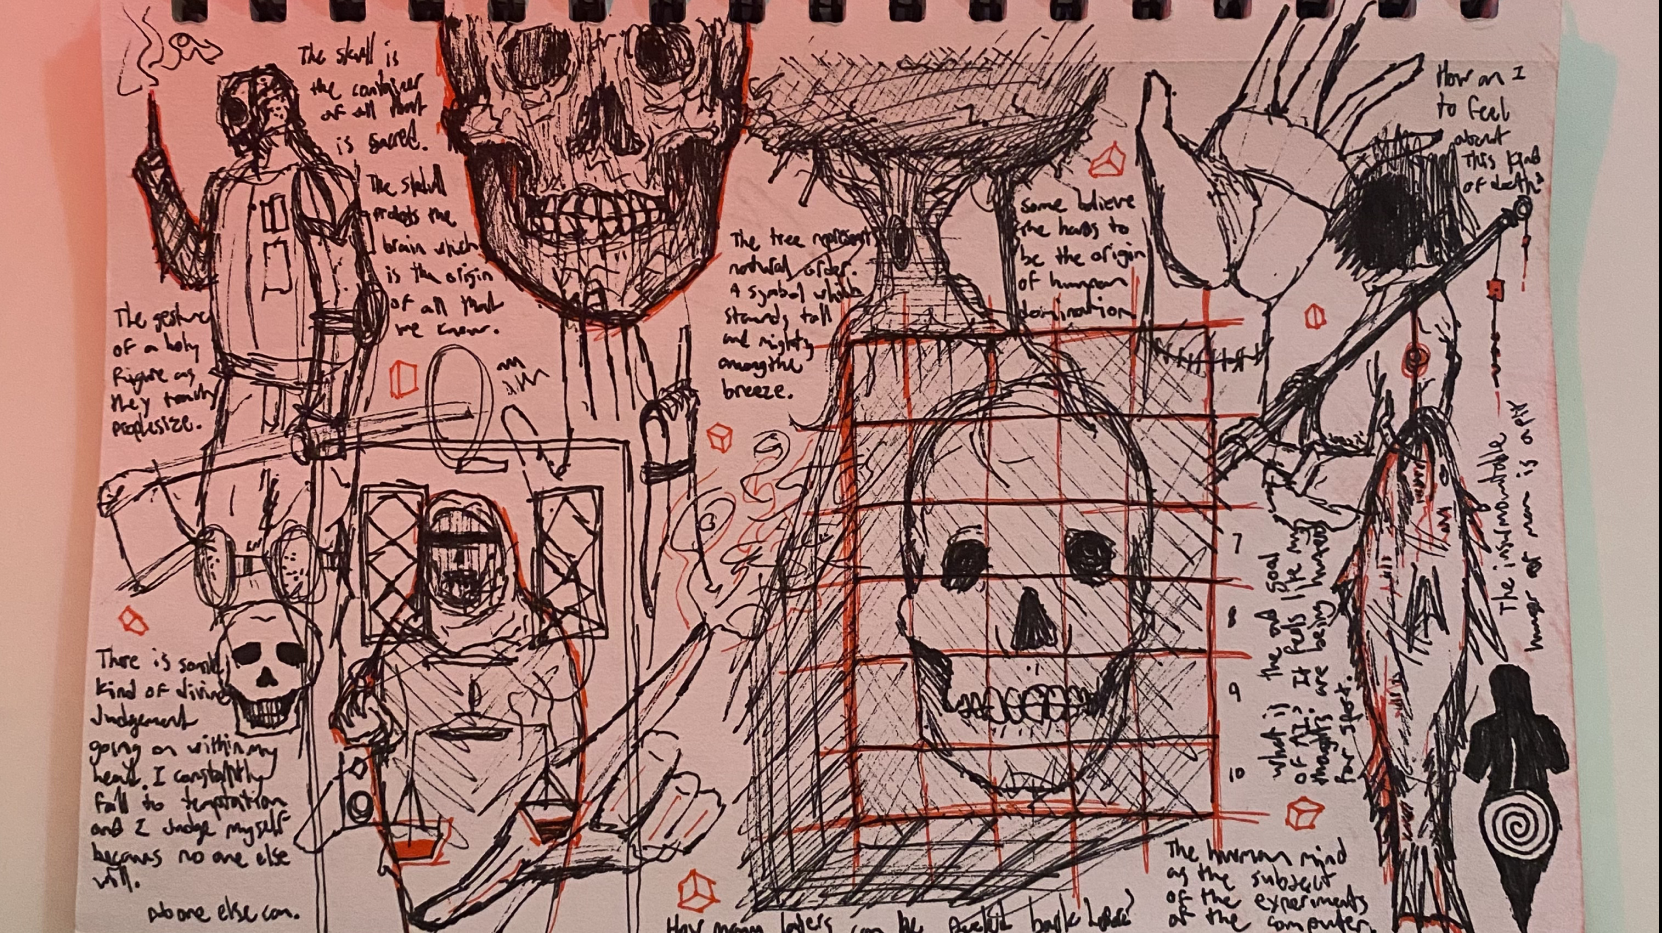 The skull is
the container
of all that
is sacred.
The skull
protects the
brain which
is the origin
of all that
we know.
The gesture
of a holy
figure as
they
There is some
kind of divine
Judgement
going on within my
head. I constantly
fall to temptation
and I Judge myself
because no one else
will.
no one else can.
The tree represent
natural order.
A symbol which
stands tall
and mighty
among the
breeze.
Some believe
the hands to
be the origin
of human
domination
How am I
to feel
about
this kind
of death?
7
8
9
10
what is the end goal
of AI? It feels like my
thoughts are being hunted
for sport.
The insurmountable
hunger of man is
The human mind
as the subject
of the experiments
of the computer.
How many layers can be peeled back